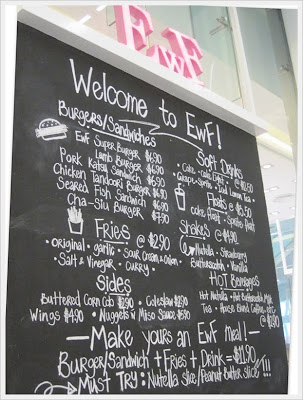 EwF
Welcome to EwF!
Burgers/Sandwiches
EwF Super Burger $6.90
Lamb Burger $6.90
Pork Katsu Sandwich $6.90
Chicken Tandoori Burger
Seared Fish Sandwich
Cha-Siu Burger
Soft Drinks
Coke
Grape
Iced Lemon Tea
Floats @
Coke float
Shakes @ $4.90
Nutella · Strawberry
Butterscotch · Vanilla
Fries @ $2.90
Original · garlic · Sour Cream & onion ·
Salt & Vinegar · Curry ·
Sides
Buttered Corn Cob $2.90 · Coleslaw $2.90
Wings $4.90 · Nuggets w Miso Sauce
HOT Beverages
Hot Nutella · Hot Butterscotch Milk
Tea · House Blend Coffee
@ $2.90
—Make yours an EwF meal!—
Burger/Sandwich + Fries + Drink = $11.90!!!
Must Try: Nutella slice/Peanut butter slice